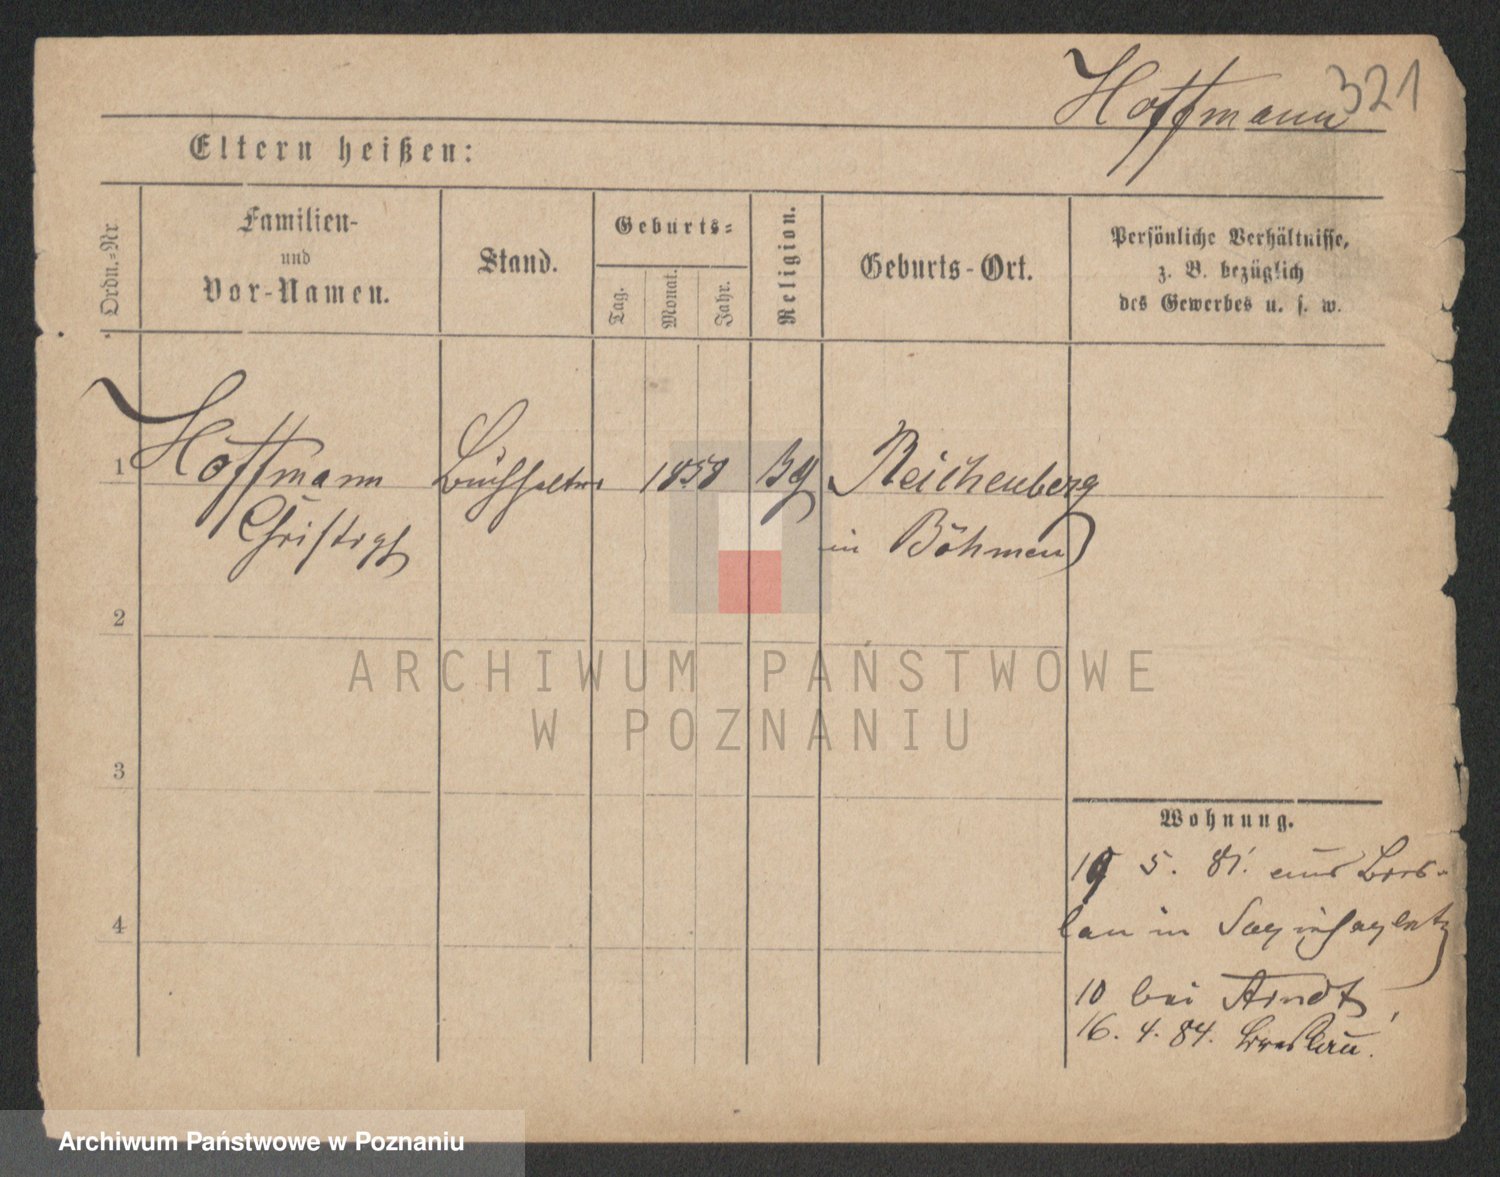 Hoffmann 321
Eltern heißen:
Ordn.-Nr
Familien-
und
Vor-Namen.
Stand.
Geburts-
Tag.
Monat.
Jahr.
Religion.
Geburts-Ort.
Persönliche Verhältnisse,
z. B. bezüglich
des Gewerbes u. s. w.
1 Hoffmann Buchhalter 1858 Reichenberg
in Böhmen
2
3
4
Wohnung.
19 5. 81. aus Bres-
lau in Sapiehaplatz
10 bei Arndt,
16. 4. 84. Breslau.
ARCHIWUM PAŃSTWOWE
W POZNANIU
Archiwum Państwowe w Poznaniu